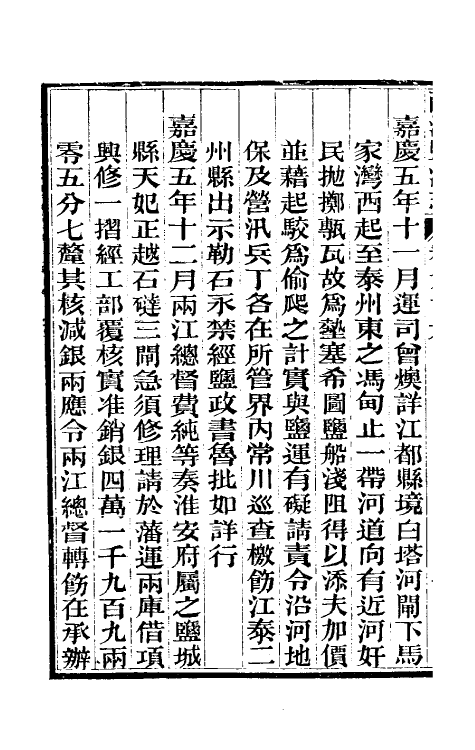 嘉慶五年十一月運司曾燠詳江都縣境白塔河閘下馬
家灣西起至泰州東之馮甸止一帶河道向有近河奸
民拋擲甎瓦故爲墊塞希圖鹽船淺阻得以添夫加價
並藉起駁爲偷爬之計實與鹽運有礙請責令沿河地
保及營汛兵丁各在所管界內常川巡查檄飭江泰二
州縣出示勒石永禁經鹽政書魯批如詳行
嘉慶五年十二月兩江總督費純等奏淮安府屬之鹽城
縣天妃正越石䃮三閘急須修理請於藩運兩庫借項
興修一摺經工部覆核實准銷銀四萬一千九百九兩
零五分七釐其核減銀兩應令兩江總督轉飭在承辦